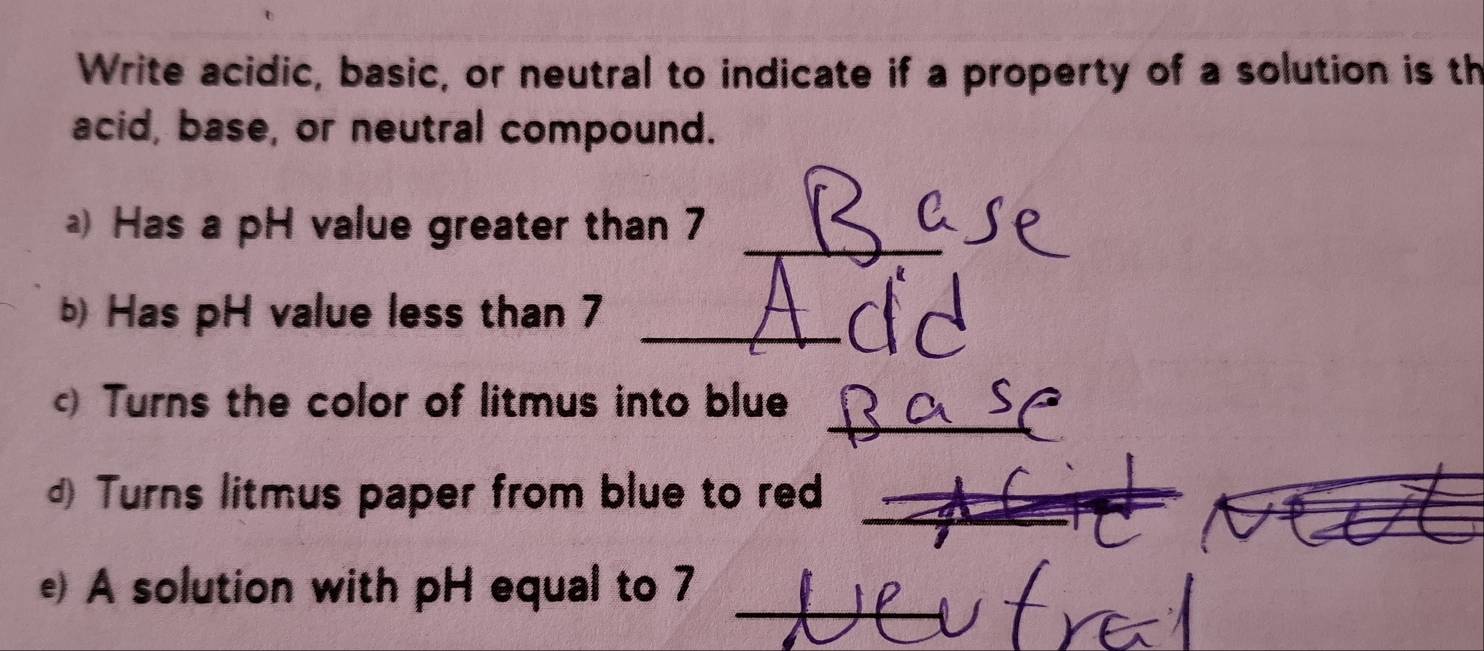 Write acidic, basic, or neutral to indicate if a property of a solution is th
acid, base, or neutral compound.
a) Has a pH value greater than 7 Base
b) Has pH value less than 7 Acid
c) Turns the color of litmus into blue Base
d) Turns litmus paper from blue to red Acid Neut
e) A solution with pH equal to 7 Neutral